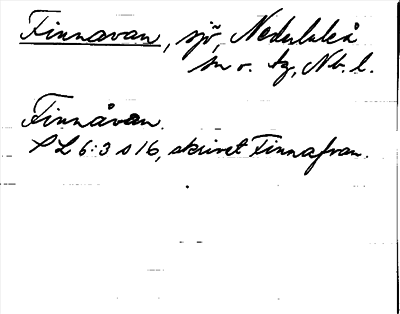 Finnavan, sjö, Nederluleå
sn o. tg, Nb. l.
Finnåvan.
SL 6:3 s 16, skrivet Finnafvan.